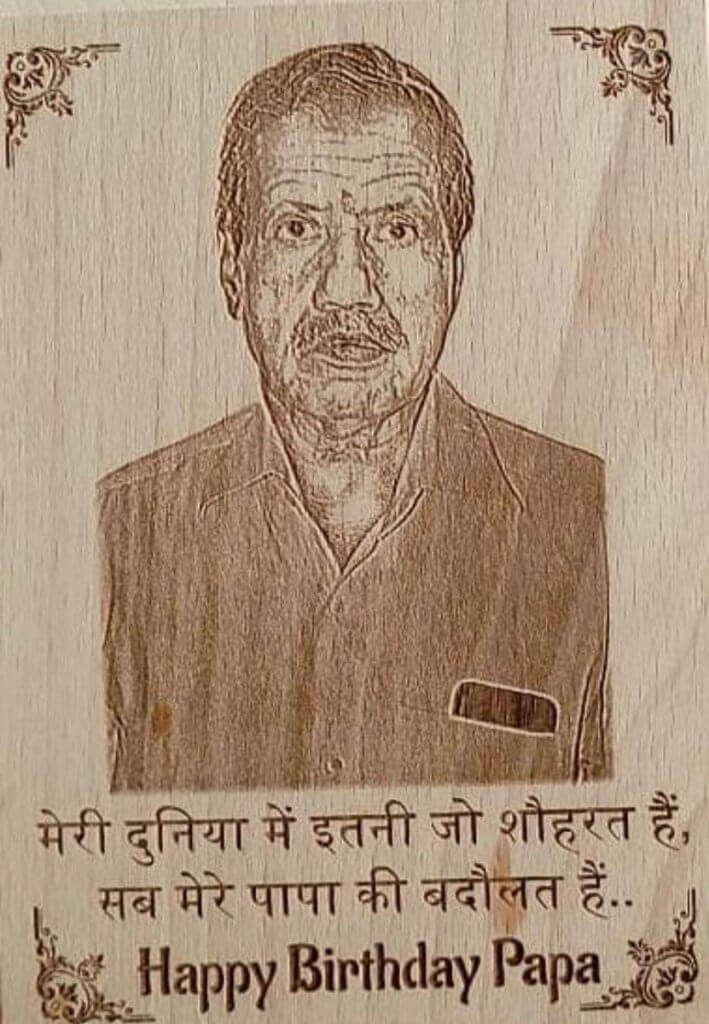 मेरी दुनिया में इतनी जो शौहरत हैं,
सब मेरे पापा की बदौलत हैं..
Happy Birthday Papa